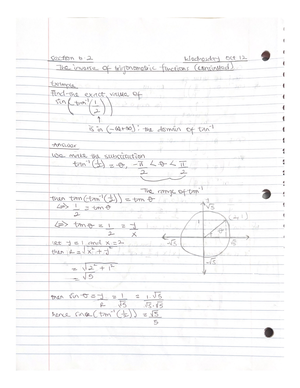 Section 6.2 Wednesday Oct 12
The inverse of trigonometric functions (continued)
Example
Find the exact value of
sin(tan⁻¹(1/2))
is in (-∞,+∞): the domain of tan⁻¹
Answer
We make the substitution
tan⁻¹(1/2) = θ, -π/2 < θ < π/2
The range of tan⁻¹
then tan(tan⁻¹(1/2)) = tan θ
<=> 1/2 = tan θ
<=> tan θ = 1/2 = y/x
let y = 1 and x = 2
then R = √x² + y²
= √2² + 1²
= √5
then sin θ = y/R = 1/√5 = 1·√5/√5·√5
hence (tan⁻¹(1/2)) = √5/5
√5
-√5
θ
-√5